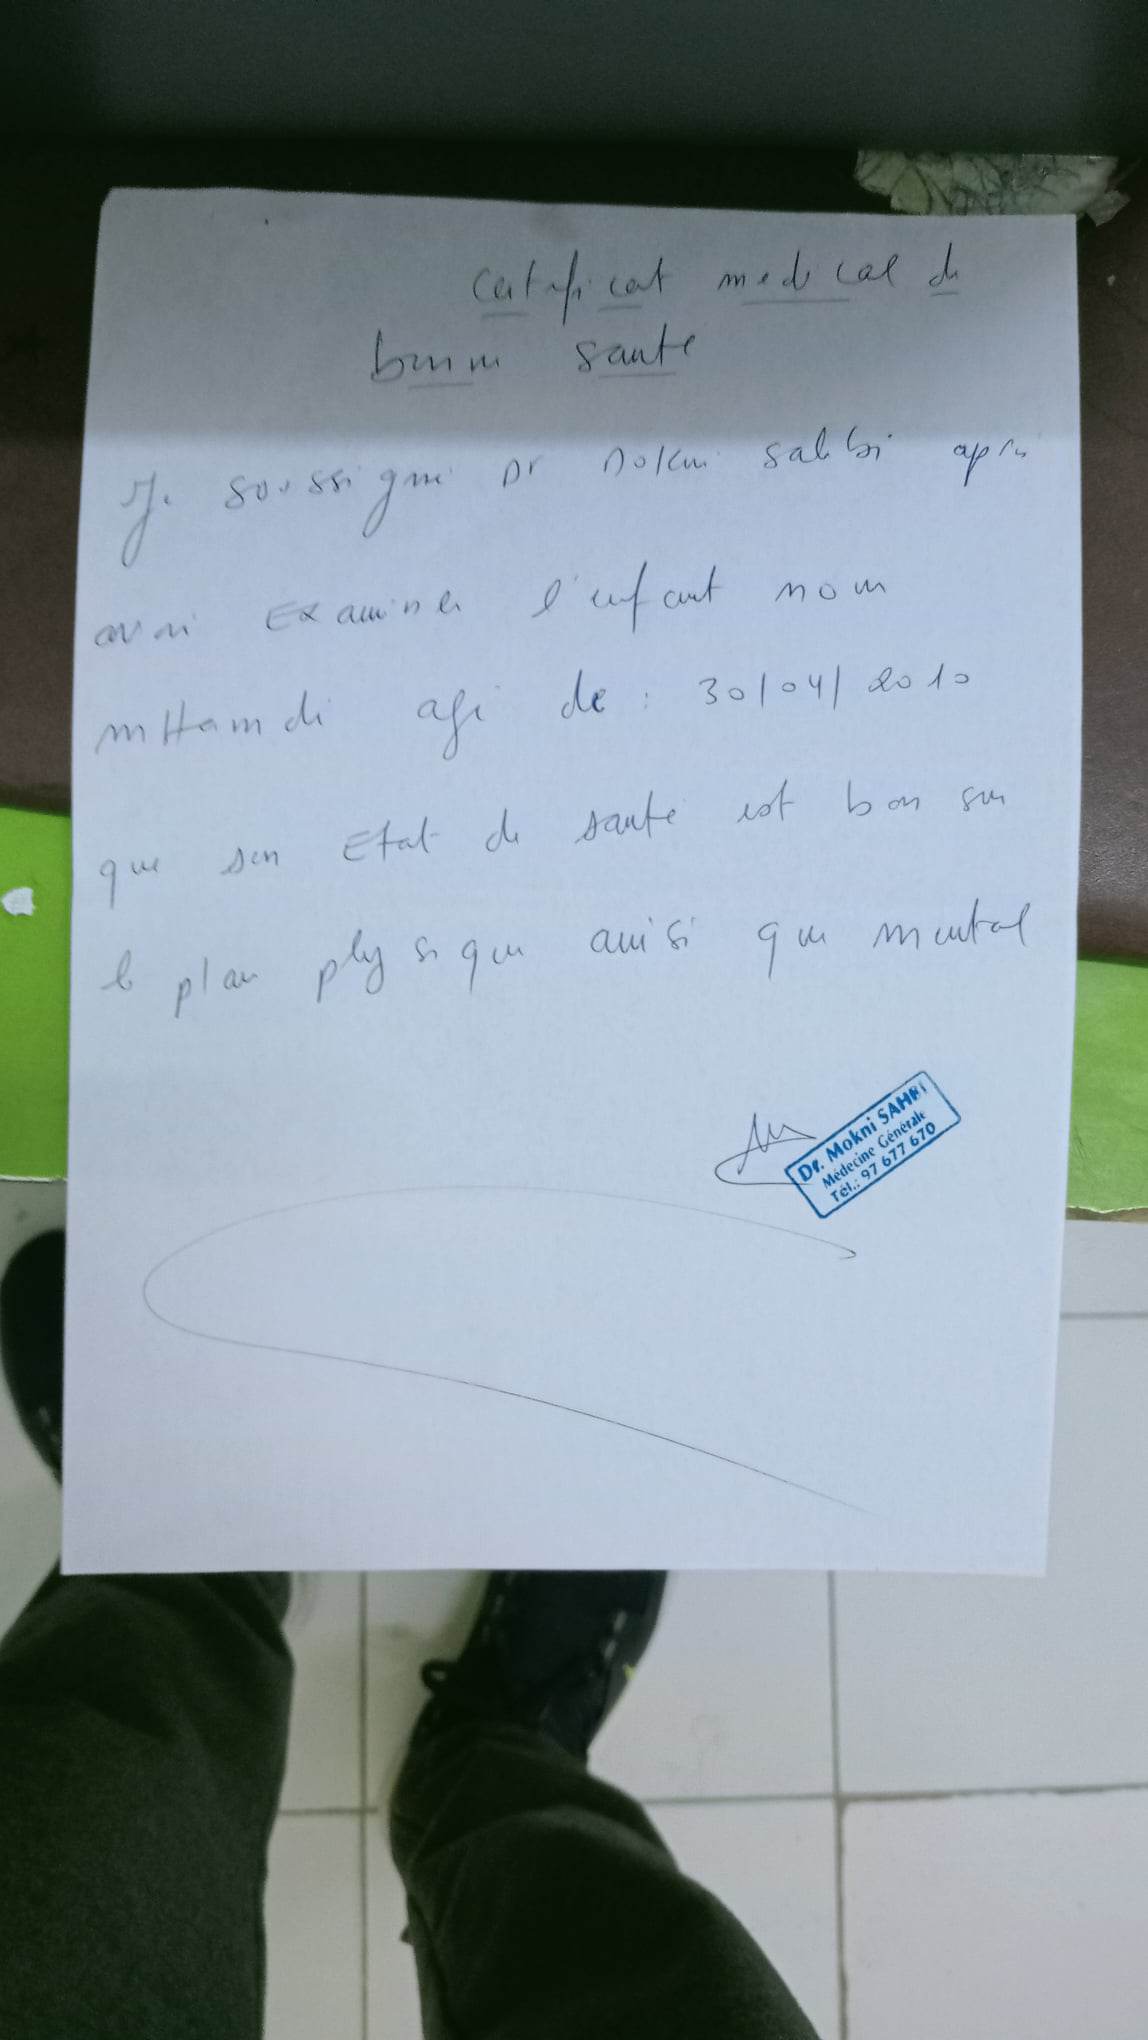 Certificat medical de
bonne sante
Je soussigné Dr Mokni sahbi après
avoir Examiner l'enfant nom
mHamdi agé de : 30/04/2010
que son Etat de sante est bon sur
le plan physique ainsi que mental
Dr. Mokni SAHBI
Médecine Générale
Tél.: 97 677 670